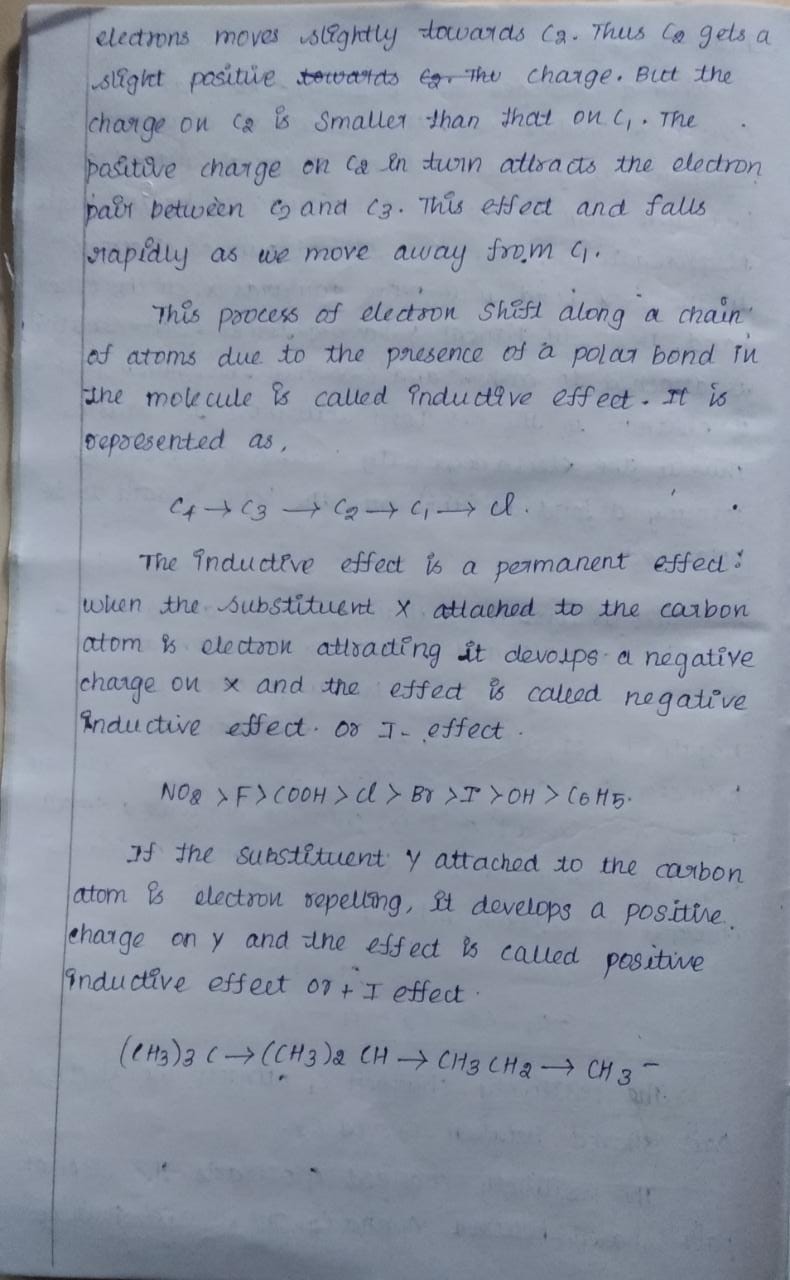 electrons moves slightly towards C2. Thus C2 gets a
slight positive towards C2. The charge. But the
charge on C2 is smaller than that on C1. The
positive charge on C2 in turn attracts the electron
pair between C2 and C3. This effect and falls
rapidly as we move away from C1.
This process of electron shift along a chain
of atoms due to the presence of a polar bond in
the molecule is called inductive effect. It is
represented as,
C4 → C3 → C2 → C1 → Cl.
The inductive effect is a permanent effect:
when the substituent X attached to the carbon
atom is electron attracting it devolps a negative
charge on x and the effect is called negative
inductive effect. or I- effect.
NO2 > F > COOH > Cl > Br > I > OH > C6H5.
If the substituent y attached to the carbon
atom is electron repelling, it develops a positive
charge on y and the effect is called positive
inductive effect or + I effect.
(CH3)3 C → (CH3)2 CH → CH3 CH2 → CH3 -